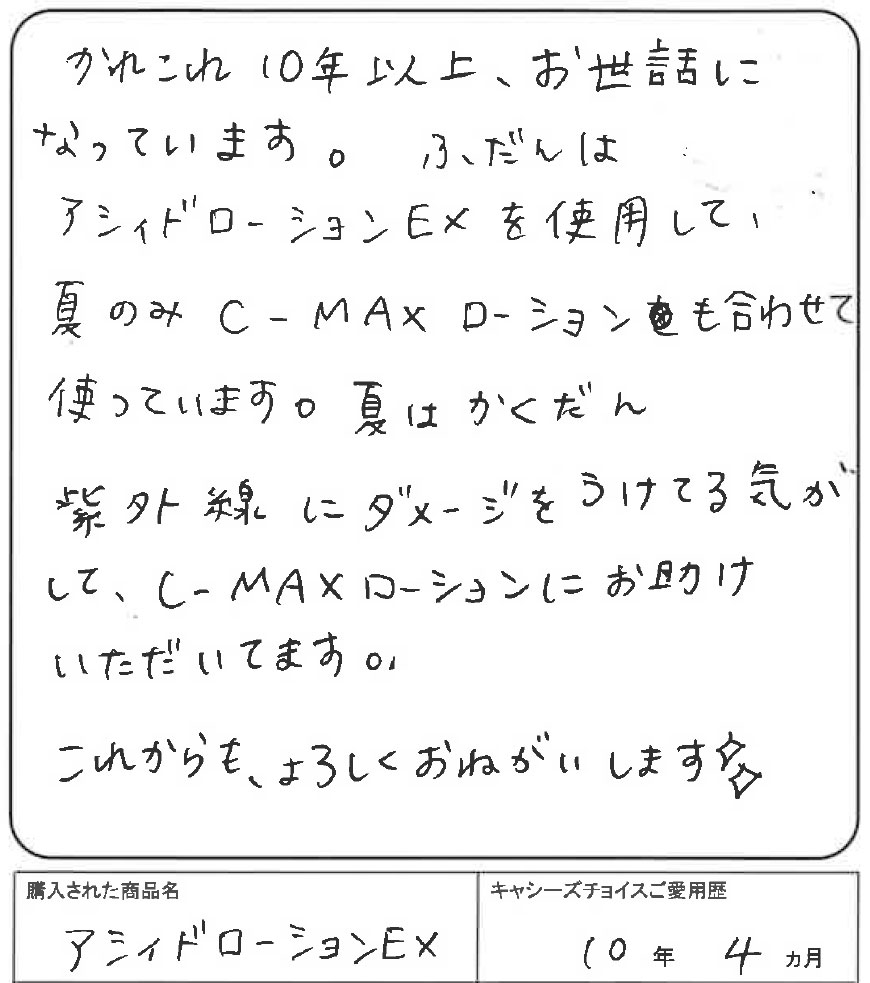 かれこれ10年以上、お世話に
なっています。ふだんは
アシィドローションEXを使用して、
夏のみ C-MAXローションも合わせて
使っています。夏はかくだん
紫外線にダメージをうけてる気が
して、C-MAXローションにお助け
いただいてます。
これからも、よろしくおねがいします
購入された商品名
アシィドローションEX
キャシーズチョイスご愛用歴
10年 4ヵ月